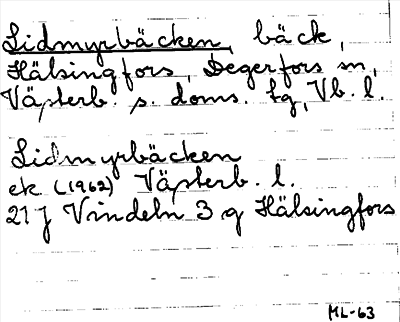 Lidmyrbäcken, bäck,
Hälsingfors, Degerfors sn,
Västerb. s. doms. tg, Vb. l.
Lidmyrbäcken
ek (1962) Västerb. l.
21 J Vindeln 3 g Hälsingfors
ML-63